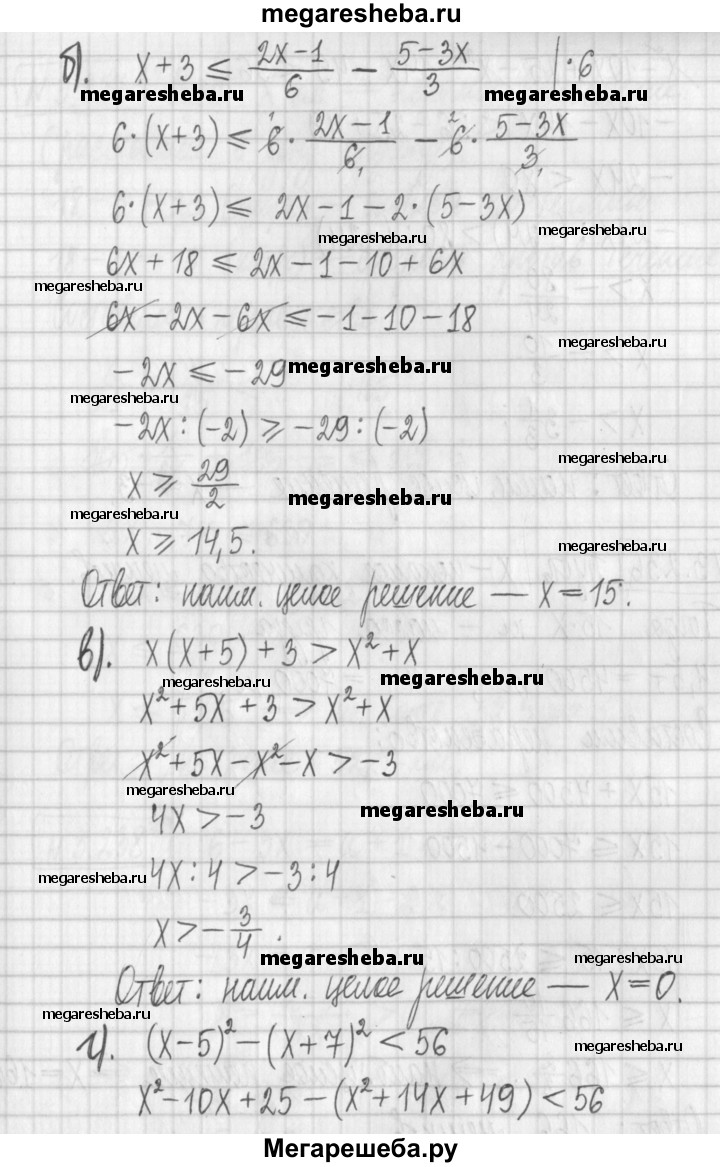 megaresheba.ru
б). x + 3 ≤ (2x−1)/6 − (5−3x)/3 | ·6
megaresheba.ru megaresheba.ru
6·(x+3) ≤ ¹6· (2x−1)/6₁ − ²6· (5−3x)/3₁
6·(x+3) ≤ 2x−1−2·(5−3x)
megaresheba.ru megaresheba.ru
6x + 18 ≤ 2x −1 −10 + 6x
megaresheba.ru
6x − 2x − 6x ≤ −1−10−18
megaresheba.ru
−2x ≤ −29 megaresheba.ru
megaresheba.ru
−2x : (−2) ≥ −29 : (−2)
megaresheba.ru
x ≥ 29/2 megaresheba.ru
megaresheba.ru
x ≥ 14,5. megaresheba.ru
Ответ: наим. целое решение — x = 15.
в). x(x+5) + 3 > x² + x
megaresheba.ru megaresheba.ru
x² + 5x + 3 > x² + x
x² + 5x − x² − x > −3
megaresheba.ru
4x > −3 megaresheba.ru
megaresheba.ru 4x : 4 > −3 : 4 megaresheba.ru
x > − 3/4 .
megaresheba.ru megaresheba.ru
Ответ: наим. целое решение — x = 0.
megaresheba.ru
г). (x−5)² − (x+7)² < 56 megaresheba.ru
x² − 10x + 25 − (x² + 14x + 49) < 56
Мегарешеба.ру